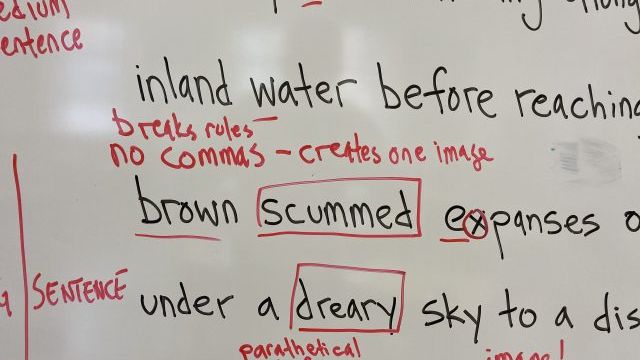 edium
entence
inland water before reaching
breaks rules
no commas - creates one image
brown scummed expanses o
SENTENCE
under a dreary sky to a dis
parathetical
image!